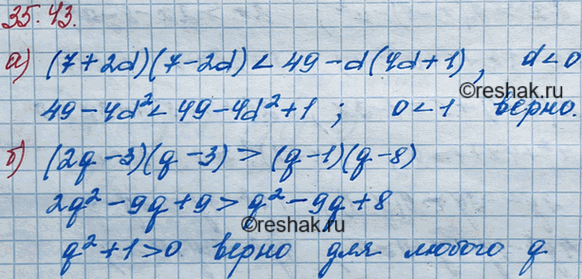 35.43.
а) (7+2d)(7-2d) < 49-d(4d+1), d<0
©reshak.ru
49-4d²<49-4d²+1; 0<1 верно.
б) (2q-3)(q-3) > (q-1)(q-8)
2q²-9q+9>q²-9q+8
©reshak.ru
q²+1>0 верно для любого q